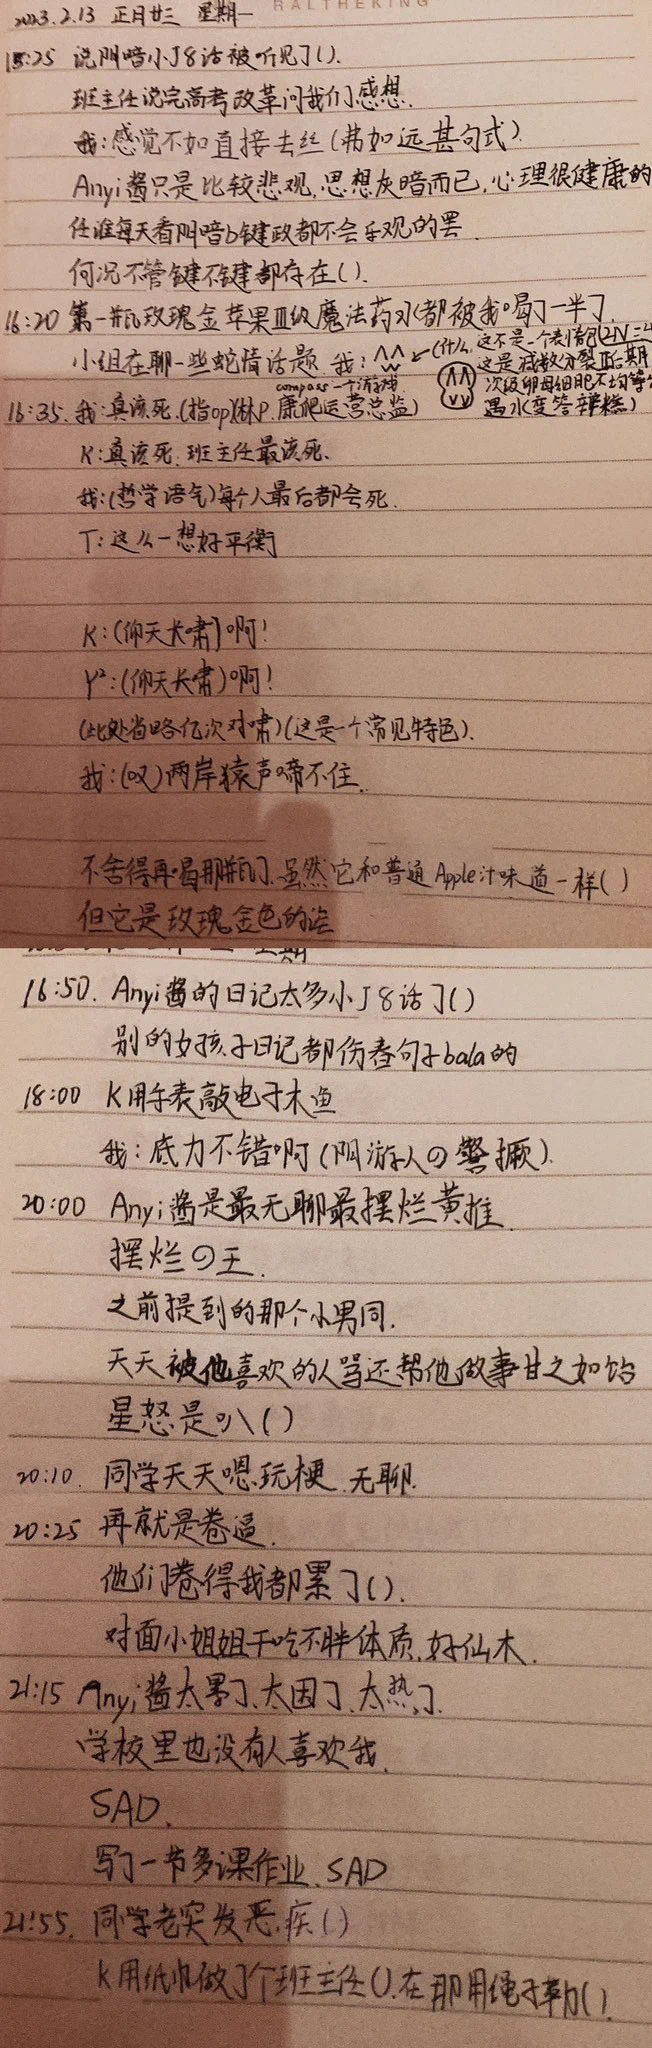 RALTHEKING
2023.2.13 正月廿三 星期一
15:25 说阴暗小J8话被听见了().
班主任说完高考改革问我们感想.
我:感觉不如直接去丝(弗如远甚句式).
Anyi酱只是比较悲观,思想灰暗而已,心理很健康的
任谁每天看阴暗b键政都不会乐观的罢.
何况不管键不键都存在().
16:20 第一瓶玫瑰金苹果Ⅲ级魔法药水都被我喝了一半了.
小组在聊一些蛇情话题.我:
(什么,这不是一个表情包
这是减数分裂Ⅱ后期
次级卵母细胞不均等
遇水变答辩糕)
compass一个游戏
16:35.我:真该死.(指op)(林P.康肥运营总监)
K:真该死.班主任最该死.
我:(哲学语气)每个人最后都会死.
T:这么一想好平衡
K:(仰天长啸)啊!
Y²:(仰天长啸)啊!
(此处省略亿次对啸)(这是一个常见特色).
我:(叹)两岸猿声啼不住.
不舍得再喝那瓶了.虽然它和普通Apple汁味道一样()
但它是玫瑰金色的
星期
16:50. Anyi酱的日记太多小J8话了()
别的女孩子日记都伤春句子bala的
18:00 K用手表敲电子木鱼
我:底力不错啊(阴游人の警撅).
20:00 Anyi酱是最无聊最摆烂黄推.
摆烂の王.
之前提到的那个小男同.
天天被他喜欢的人骂还帮他做事甘之如饴
星怒是叭()
20:10. 同学天天嗯玩梗.无聊.
20:25 再就是卷逼.
他们卷得我都累了().
对面小姐姐干吃不胖体质.好仙木.
21:15 Anyi酱太累了、太困了、太热了.
学校里也没有人喜欢我.
SAD.
写了一节多课作业.SAD
21:55. 同学老突发恶疾()
K用纸巾做了个班主任().在那用绳子勒().